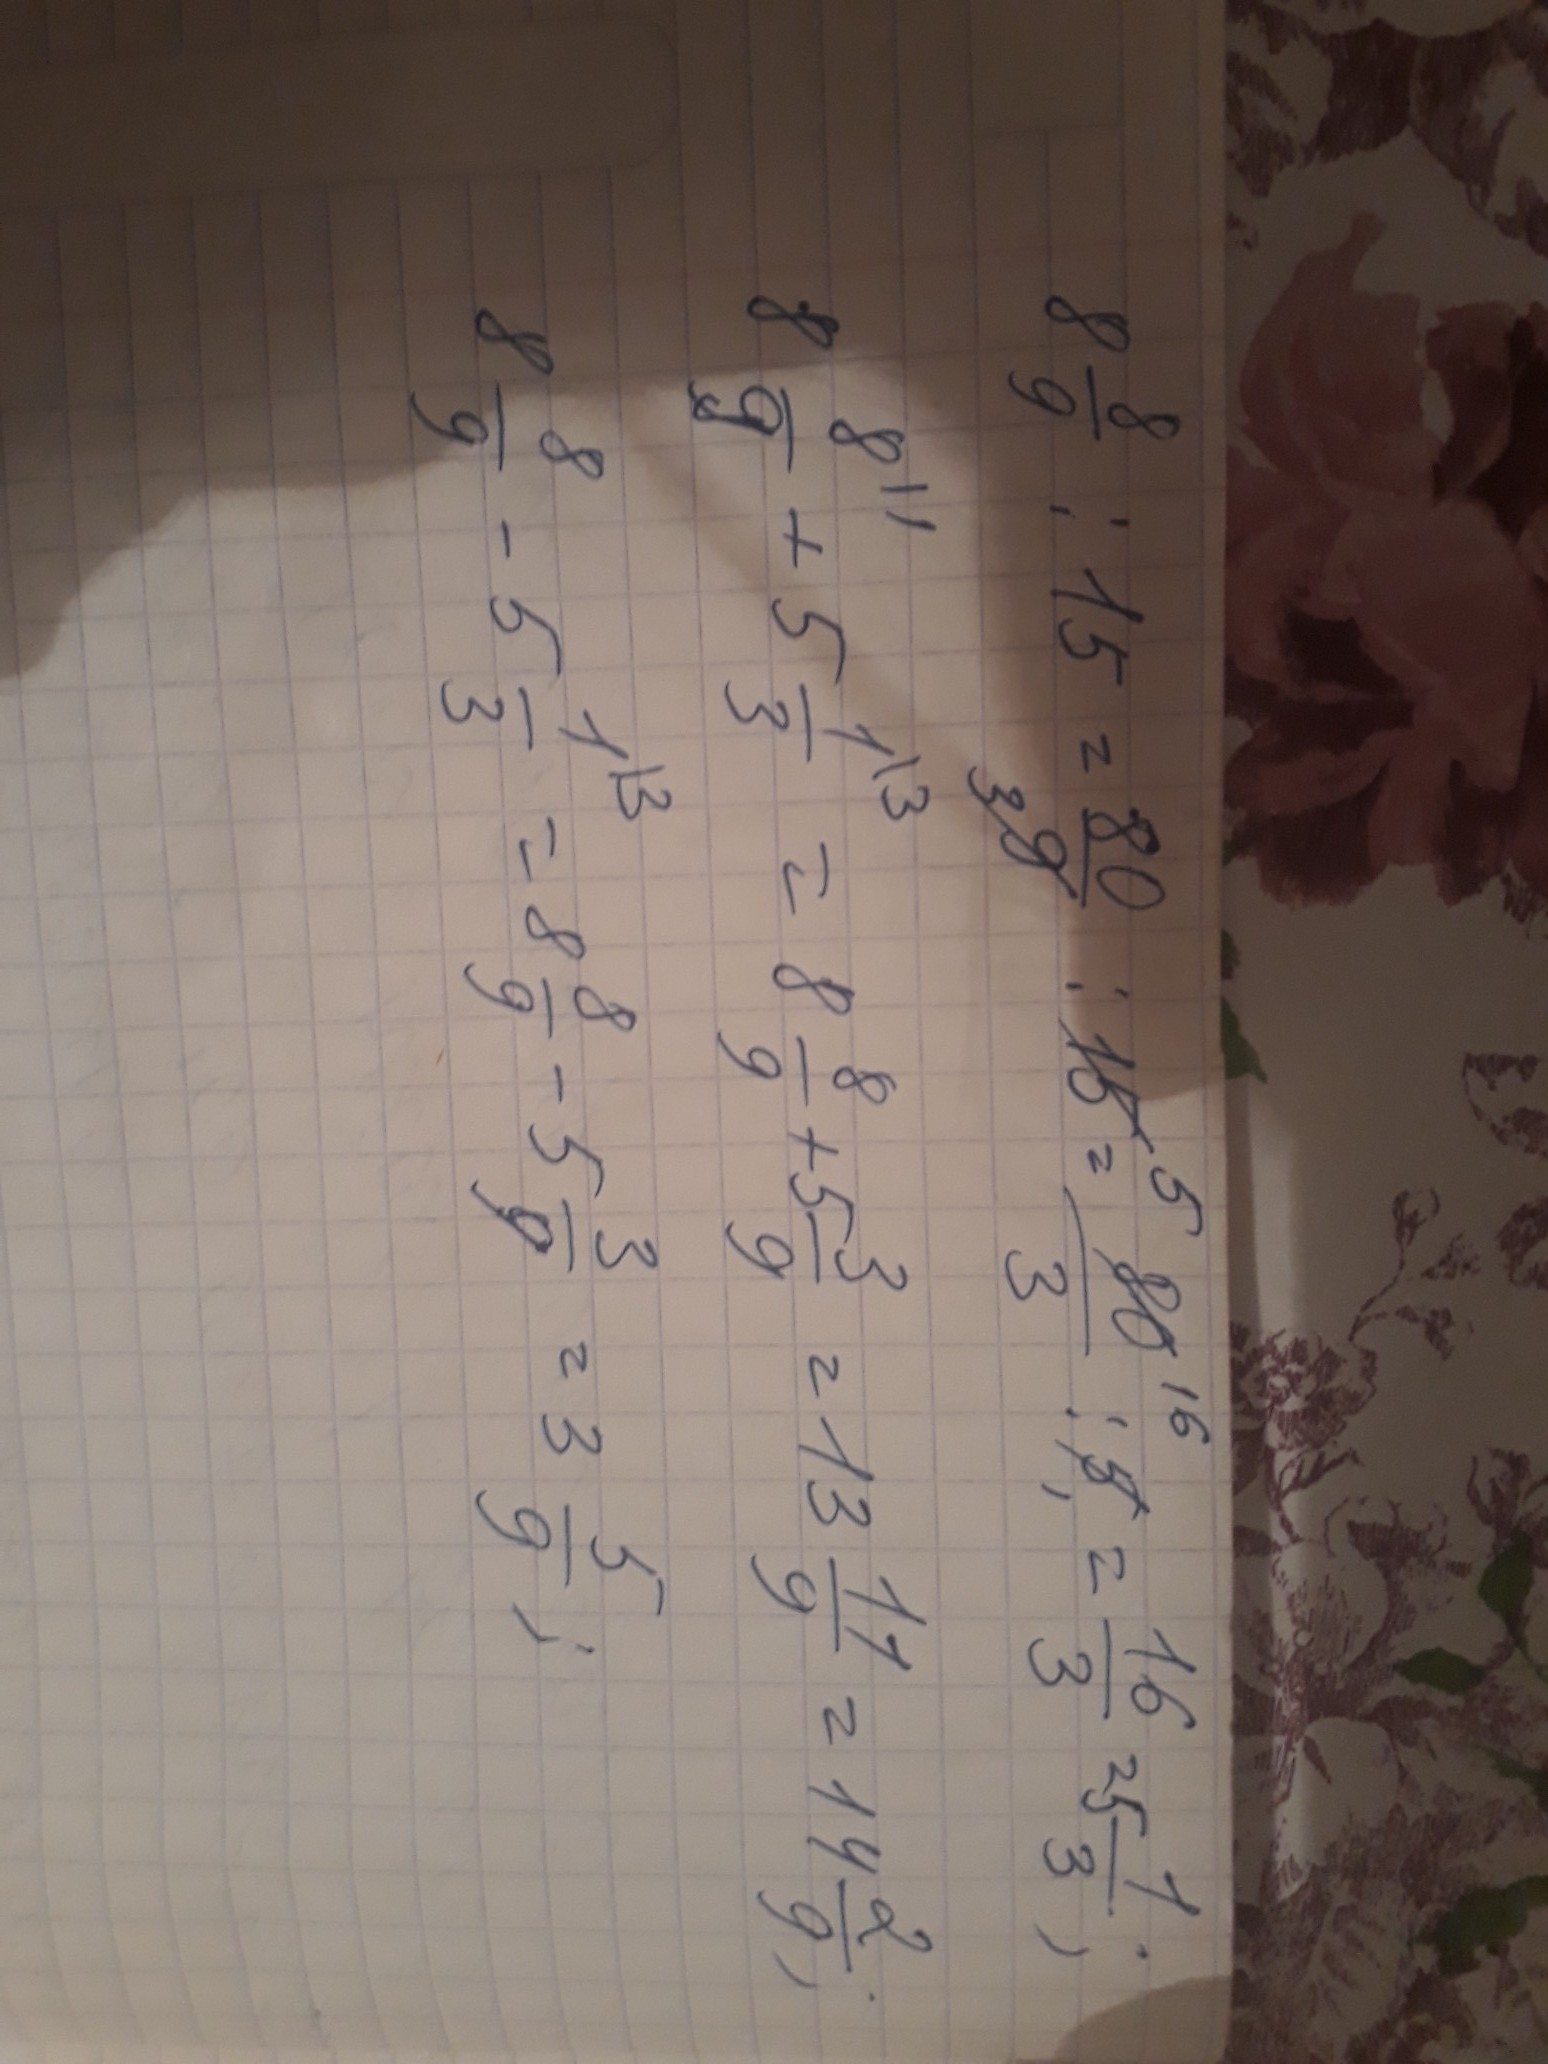 8 8/9 : 15 = 80/9 3 : 15 5 = 80 16/3 : 5 = 16/3 = 5 1/3 ;
8 8\1/9 + 5 1\3/3 = 8 8/9 + 5 3/9 = 13 11/9 = 14 2/9 ;
8 8/9 - 5 1\3/3 = 8 8/9 - 5 3/9 = 3 5/9 ;